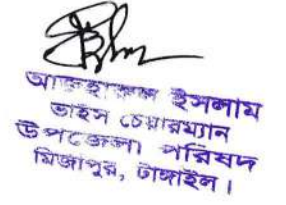 আজহারুল ইসলাম
ভাইস চেয়ারম্যান
উপজেলা পরিষদ
মির্জাপুর, টাঙ্গাইল।